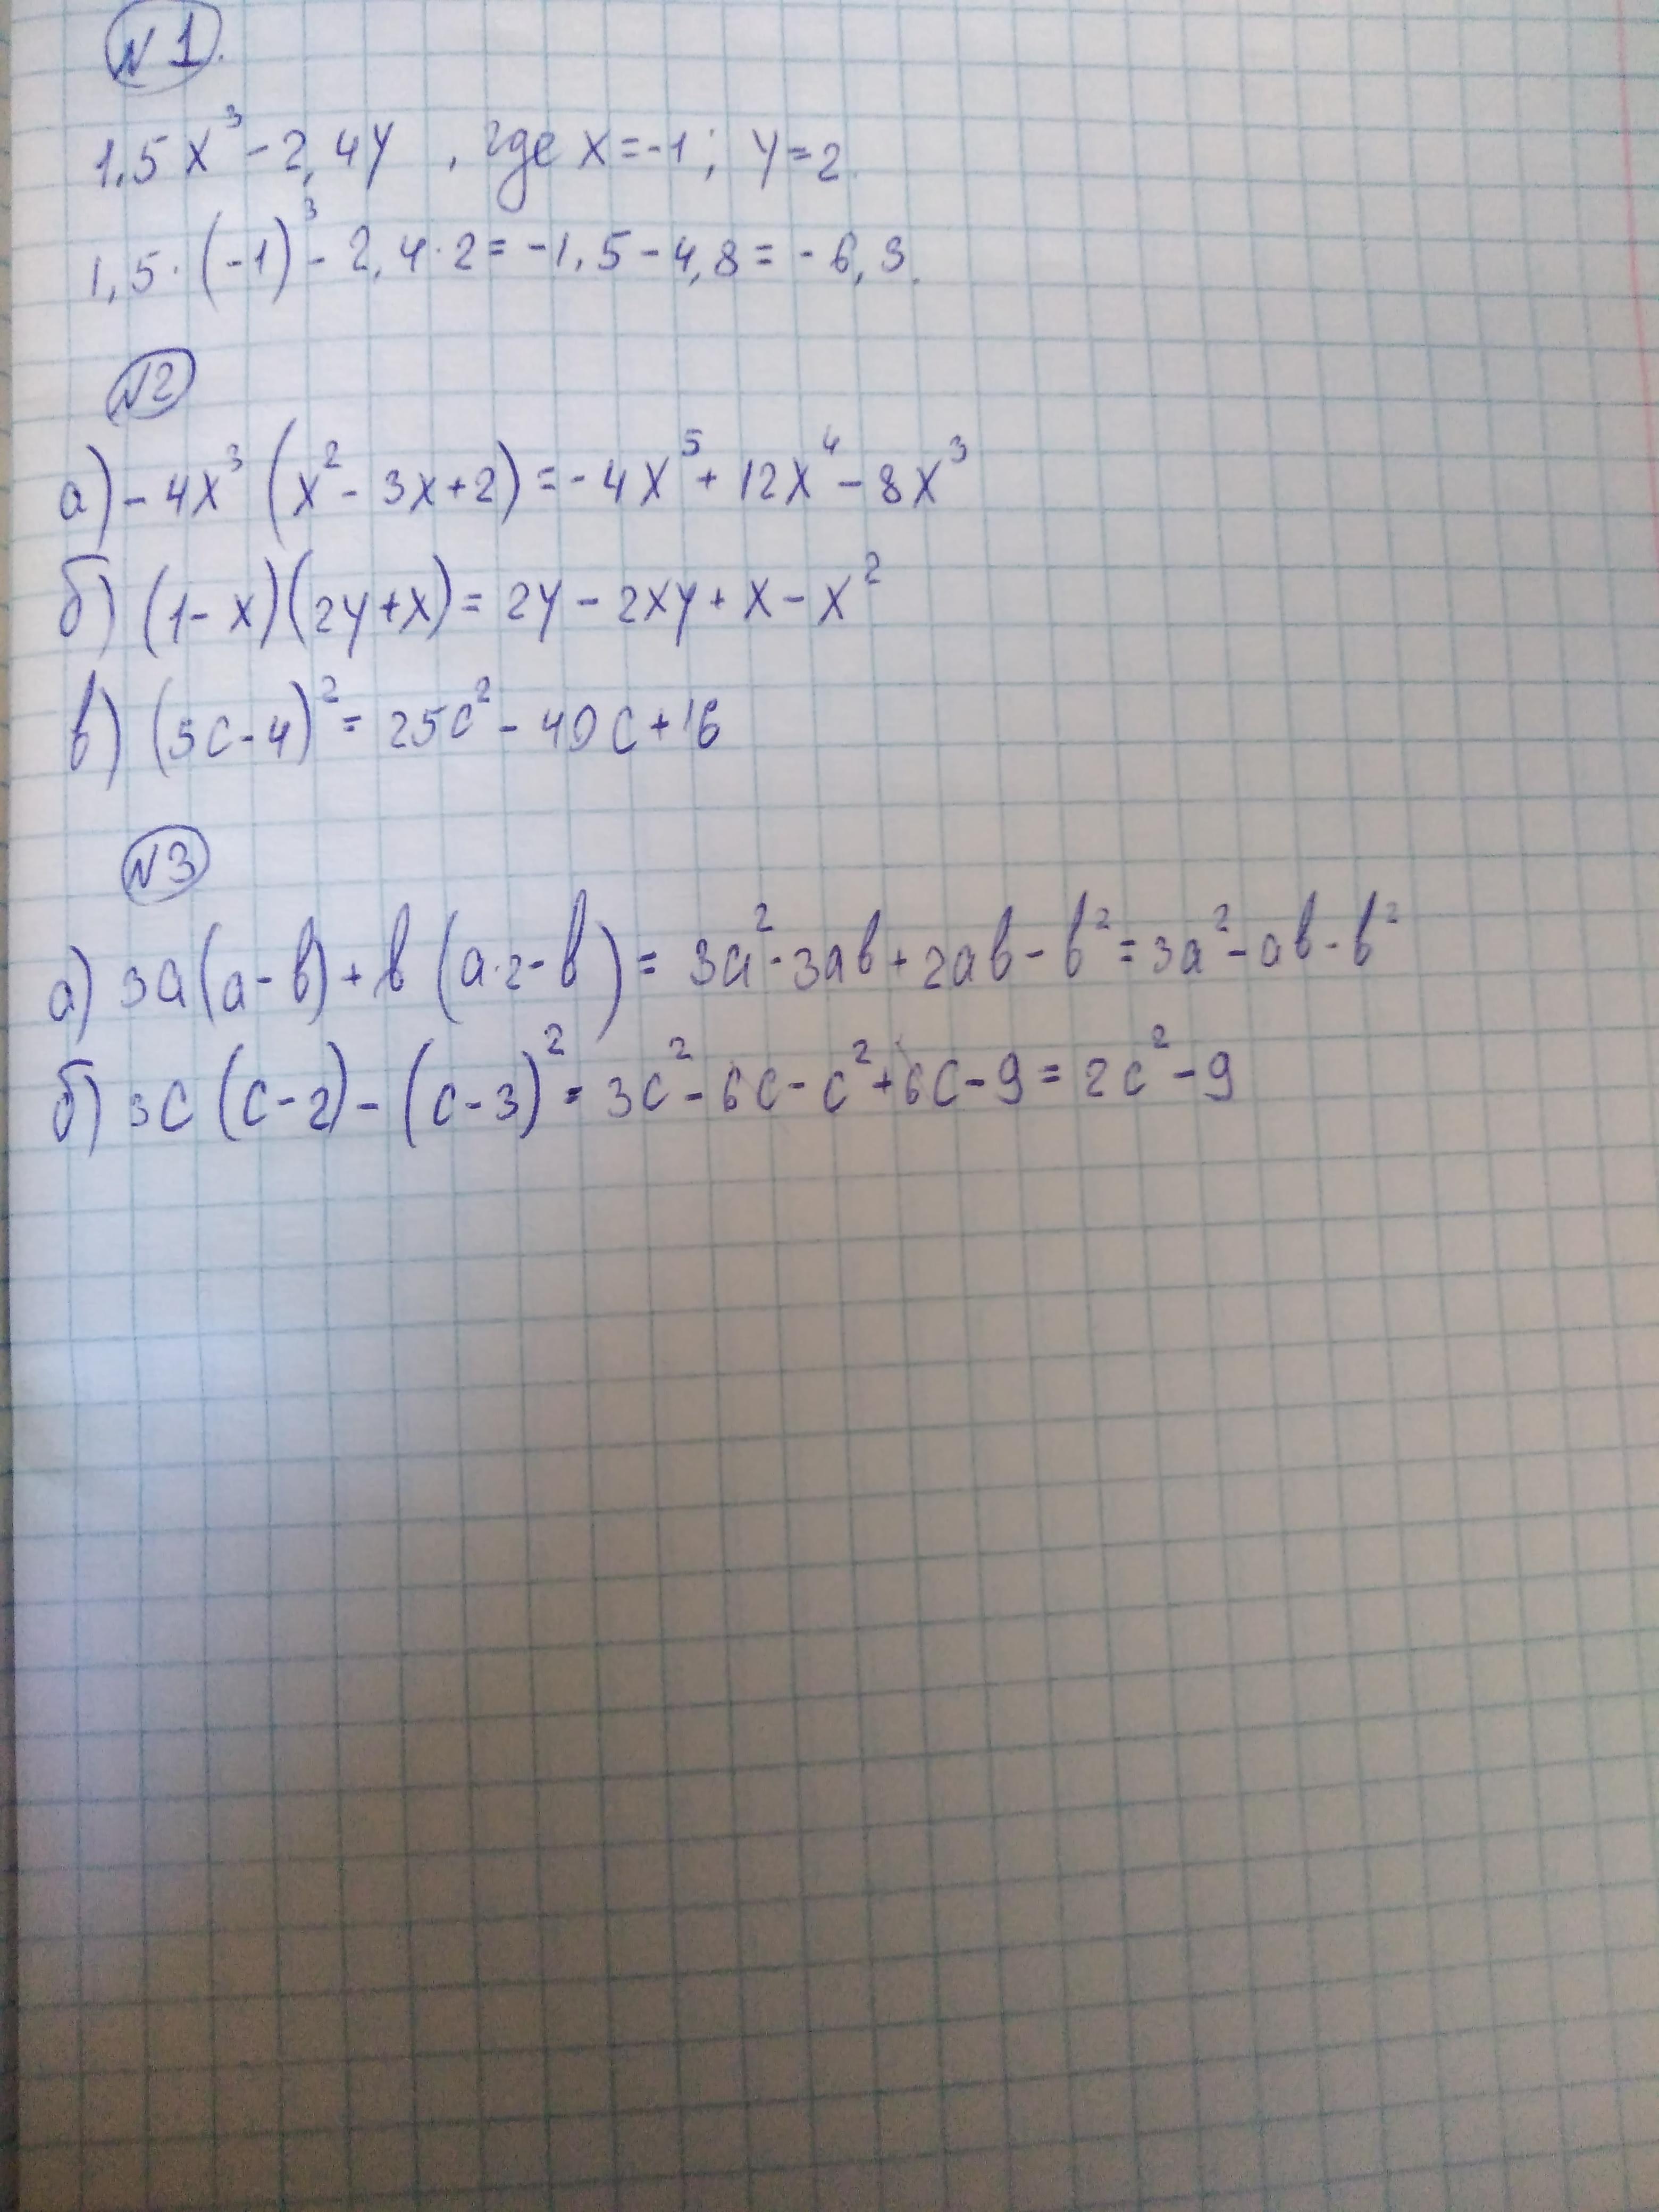 N1.
1,5x³-2,4y, где x=-1; y=2.
1,5·(-1)³-2,4·2=-1,5-4,8=-6,3.
N2
а) -4x³(x²-3x+2)=-4x⁵+12x⁴-8x³
б) (1-x)(2y+x)=2y-2xy+x-x²
в) (5c-4)²=25c²-40c+16
N3
а) 3a(a-b)+b(a·2-b)=3a²-3ab+2ab-b²=3a²-ab-b²
б) 3c(c-2)-(c-3)²=3c²-6c-c²+6c-9=2c²-9